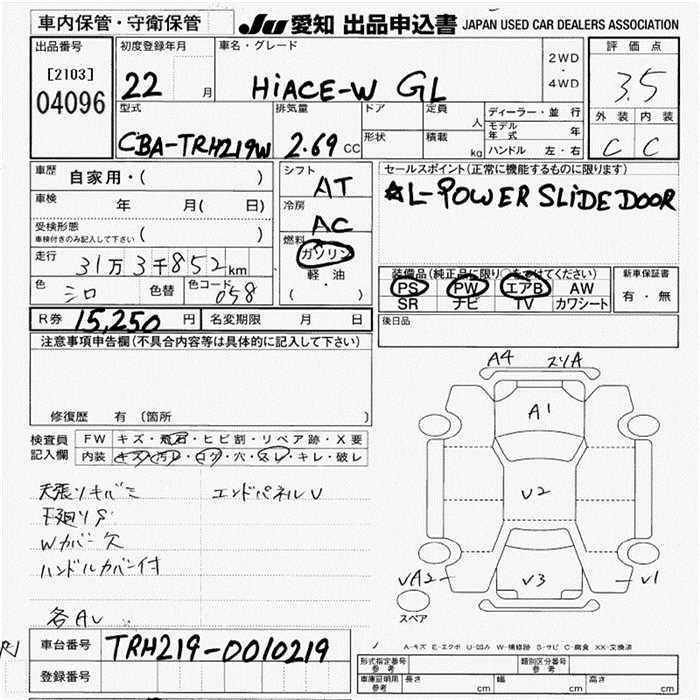 車内保管・守衛保管
JU 愛知 出品申込書 JAPAN USED CAR DEALERS ASSOCIATION
出品番号
[2103]
04096
初度登録年月
22 月
車名・グレード
HiACE-W GL
2WD
・
4WD
評価点
3.5
外装 内装
C C
型式
CBA-TRH219W
排気量
2.69 CC
ドア
形状
定員 人
積載 kg
ディーラー・並行
モデル年式 年
ハンドル 左・右
車歴
自家用・( )
車検 年 月( 日)
受検形態
車検付きのみ記入して下さい ( )
走行 31万3千852km
色 シロ 色替 色コード 058
シフト
AT
冷房
AC
燃料
ガソリン
軽・油
( )
セールスポイント(正常に機能するものに限ります)
☆L-POWER SLiDE DOOR
装備品(純正品に限り○をつけてください)
PS PW エアB AW
SR ナビ TV カワシート
新車保証書
有・無
R券 15,250 円 名変期限 月 日
後日品
注意事項申告欄(不具合内容等は具体的に記入して下さい)
修復歴 有 (箇所
検査員
記入欄
FW キズ・飛石・ヒビ割・リペア跡・X要
内装 キズ・汚レ・コゲ・穴・スレ・キレ・破レ
天張りキバミ エンドパネルU
下廻りS
Wカバー欠
ハンドルカバー付
各AU
A4 スリA
A1
U2
U3
UA2
U1
スペア
車台番号 TRH219-0010219
登録番号
A-キズ E-エクボ U-凹み W-補修跡 S-サビ C-腐食 XX-交換済
形式指定番号
参考
類別区分番号
参考
車庫証明用
参考
長さ cm 幅 cm 高さ cm